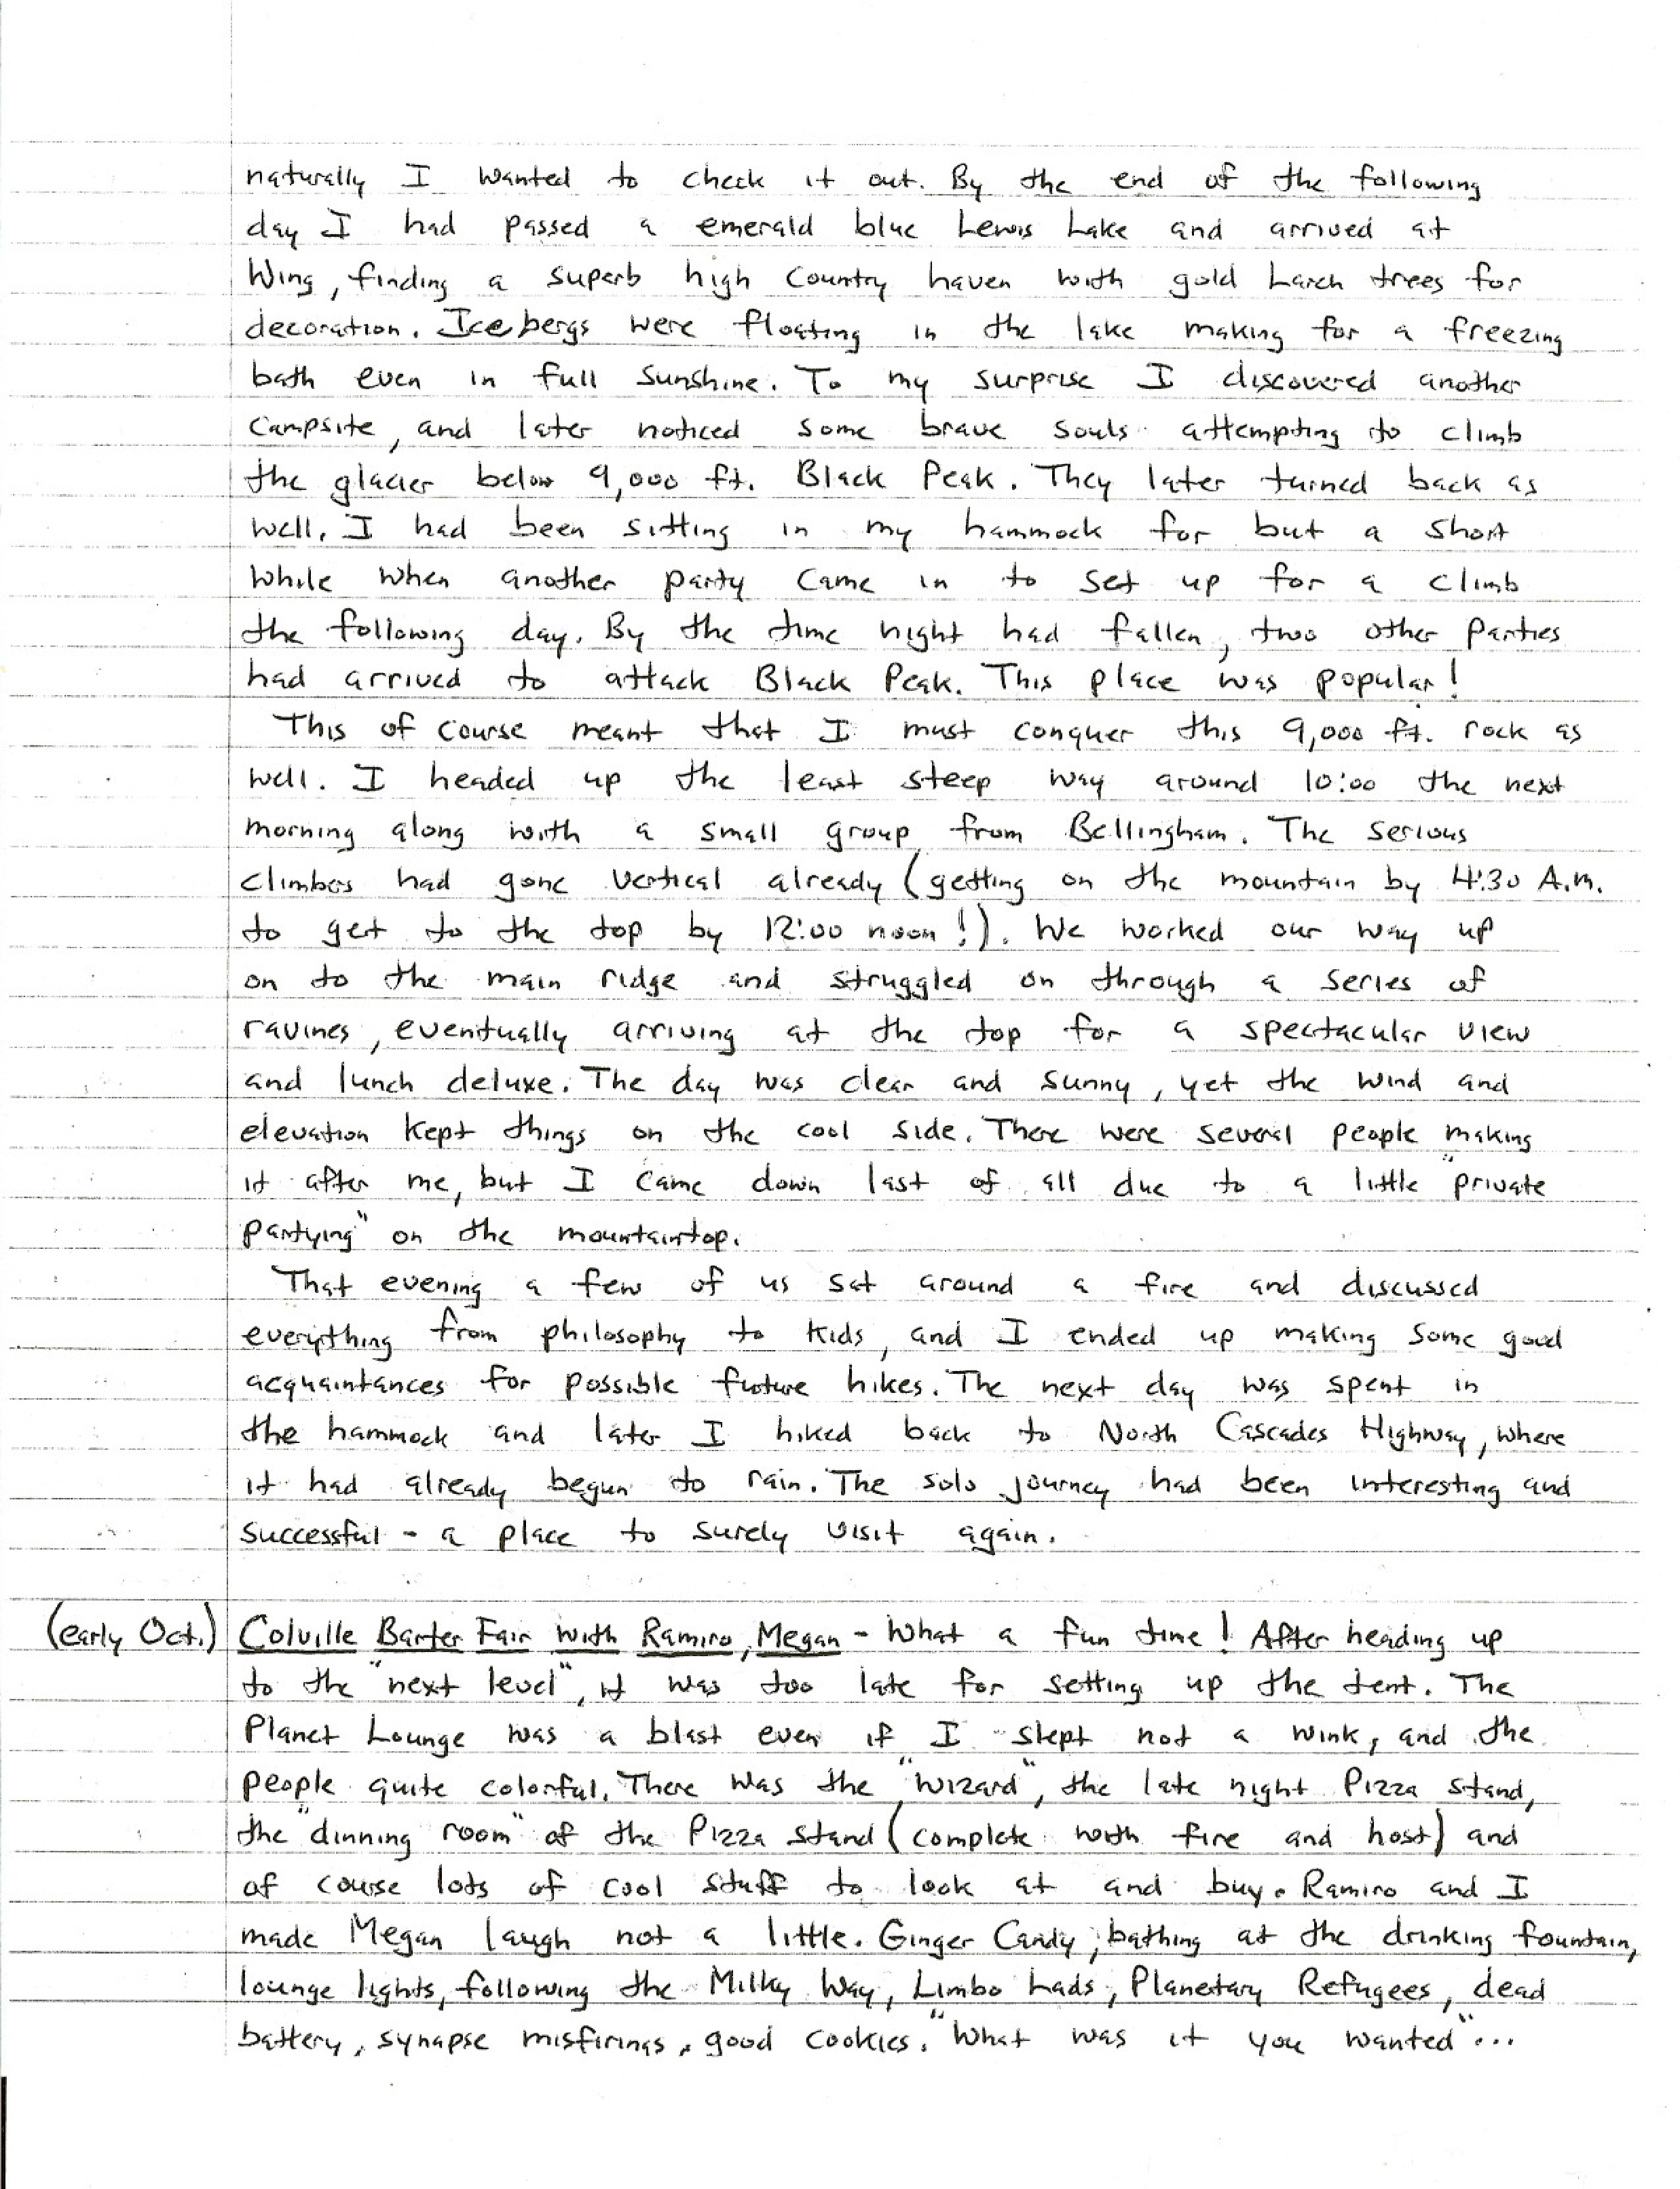 naturally I wanted to check it out. By the end of the following
day I had passed a emerald blue Lewis Lake and arrived at
Wing, finding a superb high country haven with gold Larch trees for
decoration. Icebergs were floating in the lake making for a freezing
bath even in full sunshine. To my surprise I discovered another
campsite, and later noticed some brave souls attempting to climb
the glacier below 9,000 ft. Black Peak. They later turned back as
well. I had been sitting in my hammock for but a short
while when another party came in to set up for a climb
the following day. By the time night had fallen, two other parties
had arrived to attack Black Peak. This place was popular!
This of course meant that I must conquer this 9,000 ft. rock as
well. I headed up the least steep way around 10:00 the next
morning along with a small group from Bellingham. The serious
climbers had gone vertical already (getting on the mountain by 4:30 A.M.
to get to the top by 12:00 noon!). We worked our way up
on to the main ridge and struggled on through a series of
ravines, eventually arriving at the top for a spectacular view
and lunch deluxe. The day was clear and sunny, yet the wind and
elevation kept things on the cool side. There were several people making
it after me, but I came down last of all due to a little "private
partying" on the mountaintop.
That evening a few of us sat around a fire and discussed
everything from philosophy to kids, and I ended up making some good
acquaintances for possible future hikes. The next day was spent in
the hammock and later I hiked back to North Cascades Highway, where
it had already begun to rain. The solo journey had been interesting and
successful - a place to surely visit again.
(early Oct.) Colville Barter Fair with Ramiro, Megan - What a fun time! After heading up
to the "next level", it was too late for setting up the tent. The
Planet Lounge was a blast even if I slept not a wink, and the
people quite colorful. There was the "wizard", the late night Pizza stand,
the "dinning room" of the Pizza stand (complete with fire and host) and
of course lots of cool stuff to look at and buy. Ramiro and I
made Megan laugh not a little. Ginger Candy, bathing at the drinking fountain,
lounge lights, following the Milky Way, Limbo Lads, Planetary Refugees, dead
battery, synapse misfirings, good cookies. "What was it you wanted"...